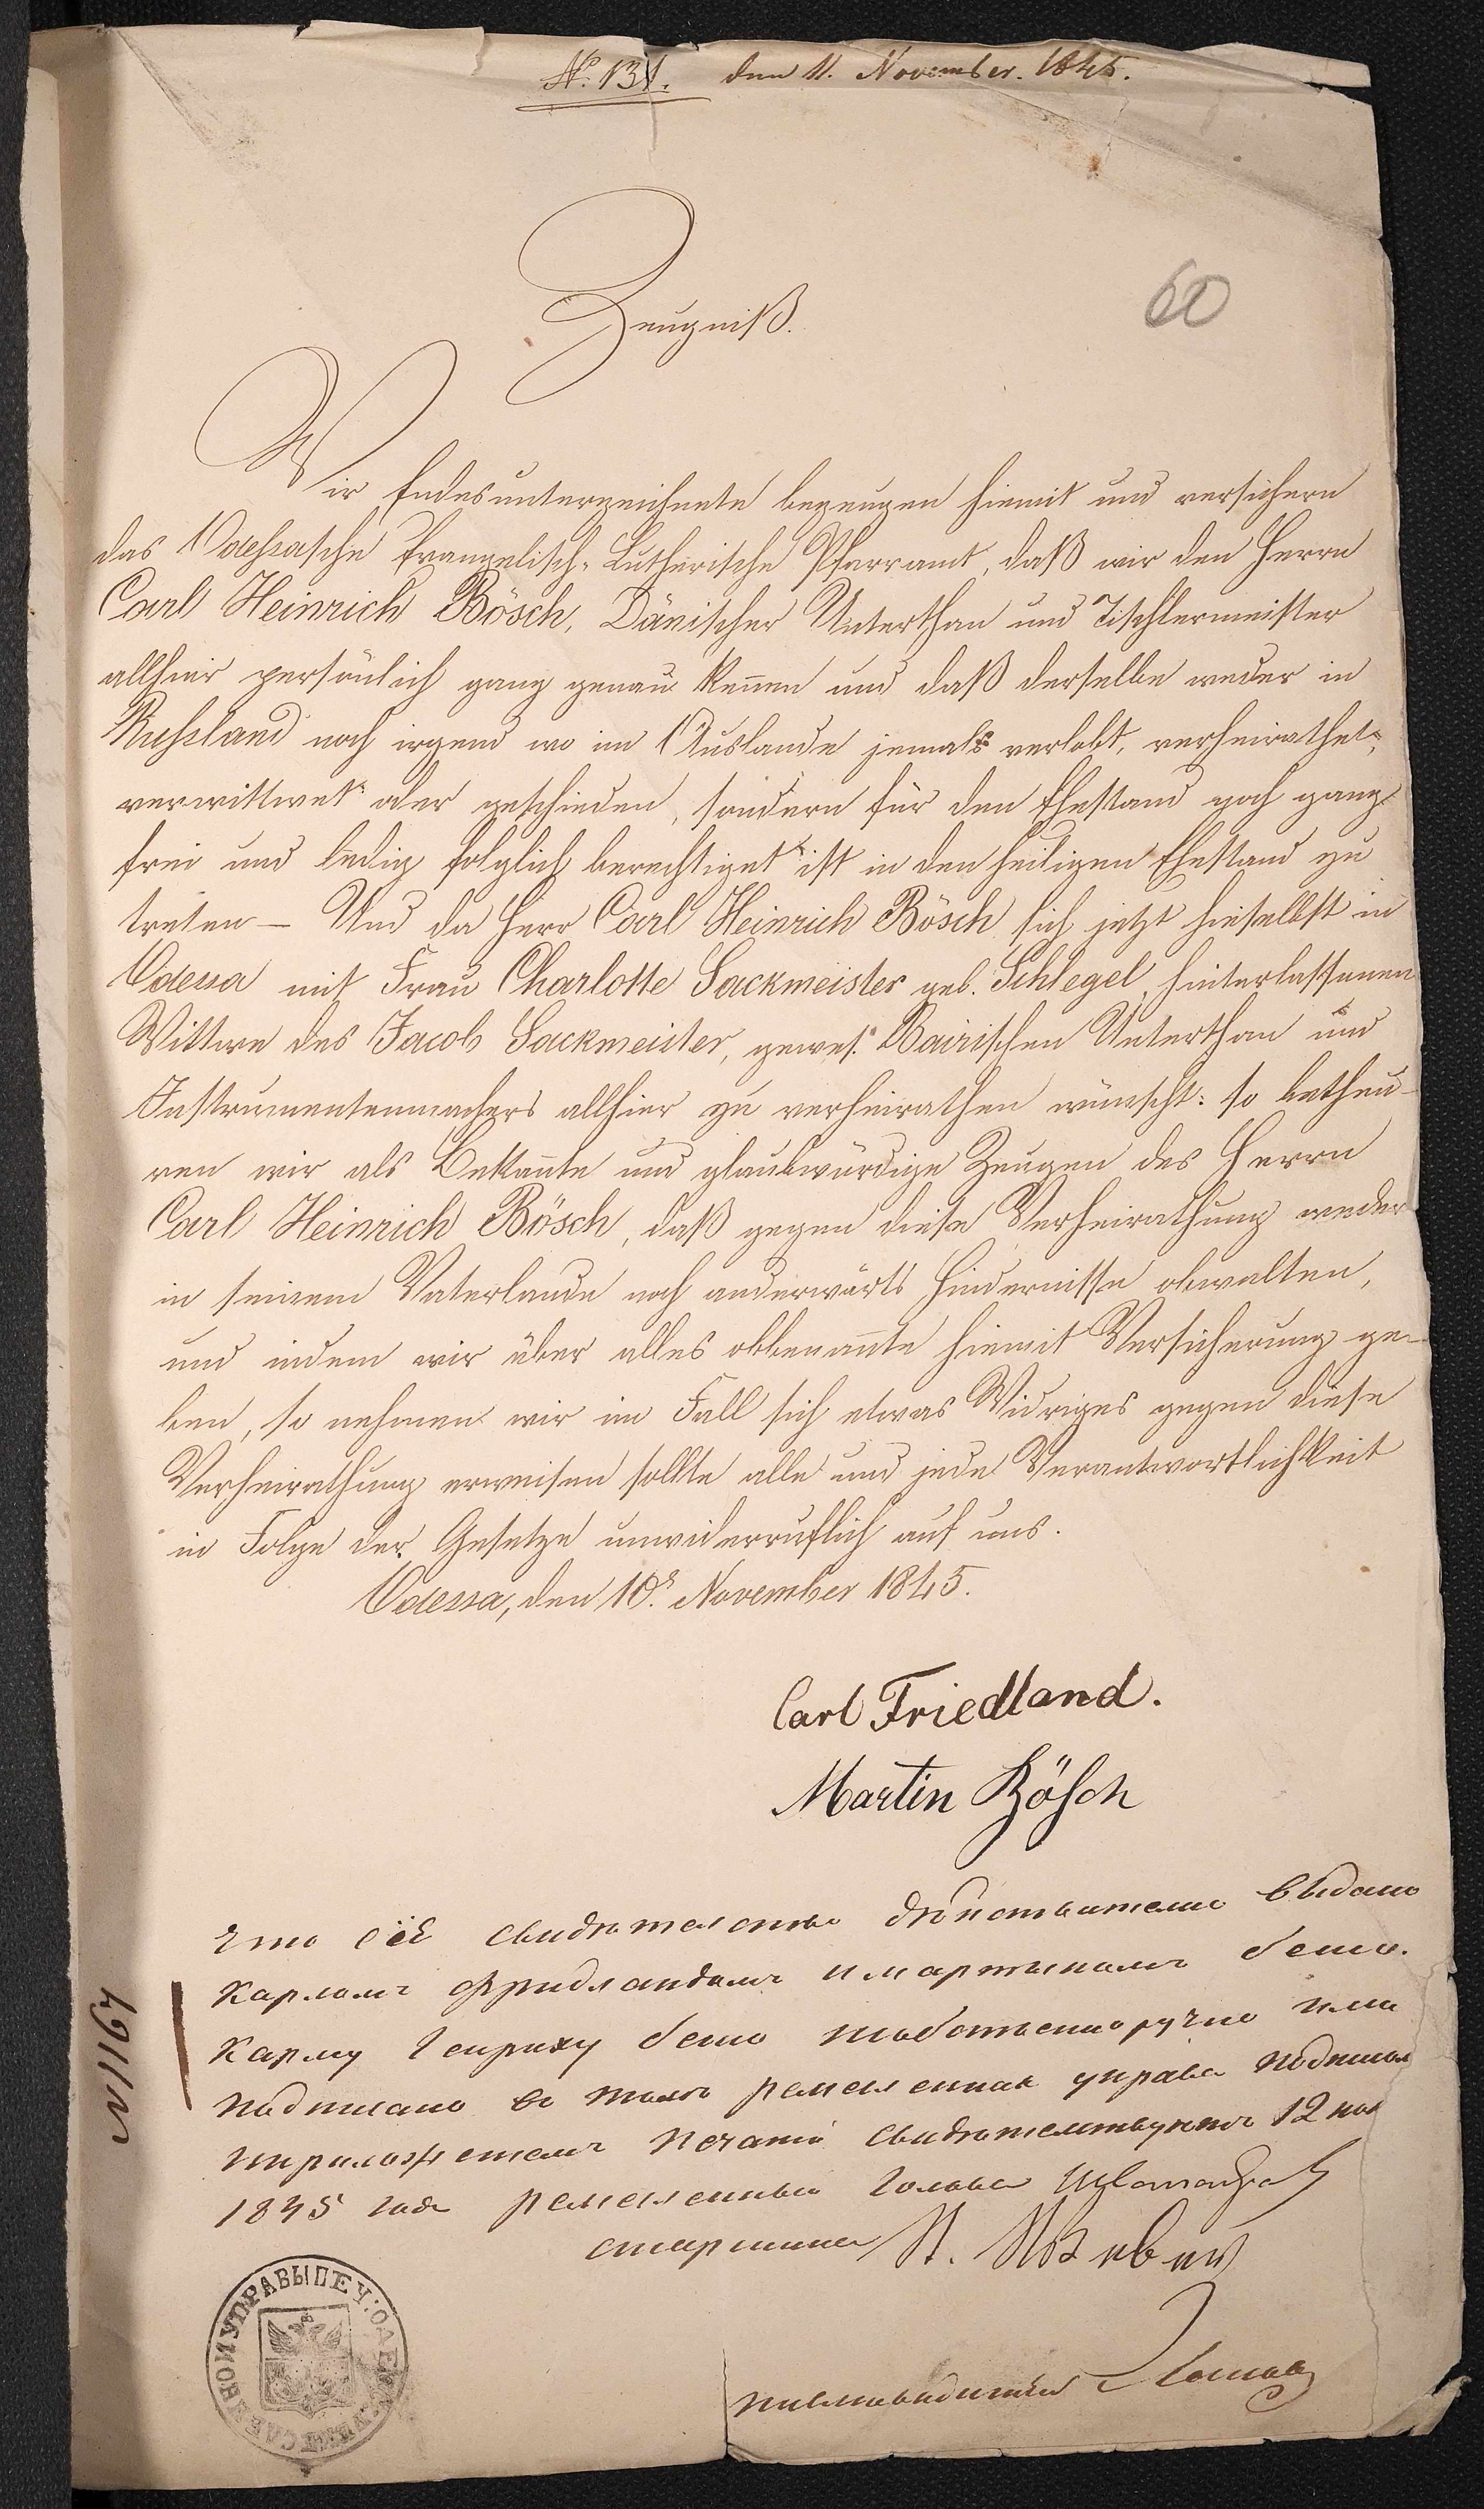 № 131. den 11. November. 1845.
60
Zeugniß.
Wir Endesunterzeichnete bezeugen hiemit und versichern
das Odessasche Evangelisch-Lutherische Pfarramt, daß wir den Herrn
Carl Heinrich Bösch, Dänischer Unterthan und Tischlermeister
allhier persönlich ganz genau kennen und daß derselbe weder in
Russland noch irgend wo im Auslande jemals verlobt, verheirathet,
verwittwet oder geschieden, sondern für den Ehestand noch ganz
frei und ledig folglich berechtiget ist in den heiligen Ehestand zu
treten – Und da Herr Carl Heinrich Bösch sich jetzt hieselbst in
Odessa mit Frau Charlotte Sackmeister geb. Schlegel, hinterlassenen
Wittwe des Jacob Sackmeister, gewes. Bairischen Unterthan und
Instrumentenmachers allhier zu verheirathen wünscht: so betheu-
ren wir als Bekannte und glaubwürdige Zeugen des Herrn
Carl Heinrich Bösch, daß gegen diese Verheirathung weder
in seinem Vaterlande noch anderwärts Hindernisse obwalten,
und indem wir über alles obbenannte hiemit Versicherung ge-
ben, so nehmen wir im Fall sich etwas Widriges gegen diese
Verheirathung erweisen sollte alle und jede Verantwortlichkeit
in Folge der Gesetze unwiderruflich auf uns.
Odessa, den 10. November 1845.
Carl Friedland.
Martin Bösch
Что сіе свидѣтельство дѣйствительно выдано
Карломъ Фридландомъ и Мартыномъ Бешо.
Карлу Генриху Бешо и собственноручно ими
подписано въ томъ ремесленная управа подписомъ
приложеніемъ печати свидѣтельствуетъ 12 ноя
1845 года ремесленный голова
старшина
письмоводитель
№1167
ПЕЧ: ОДЕС: РЕМЕСЛЕННОЙ УПРАВЫ